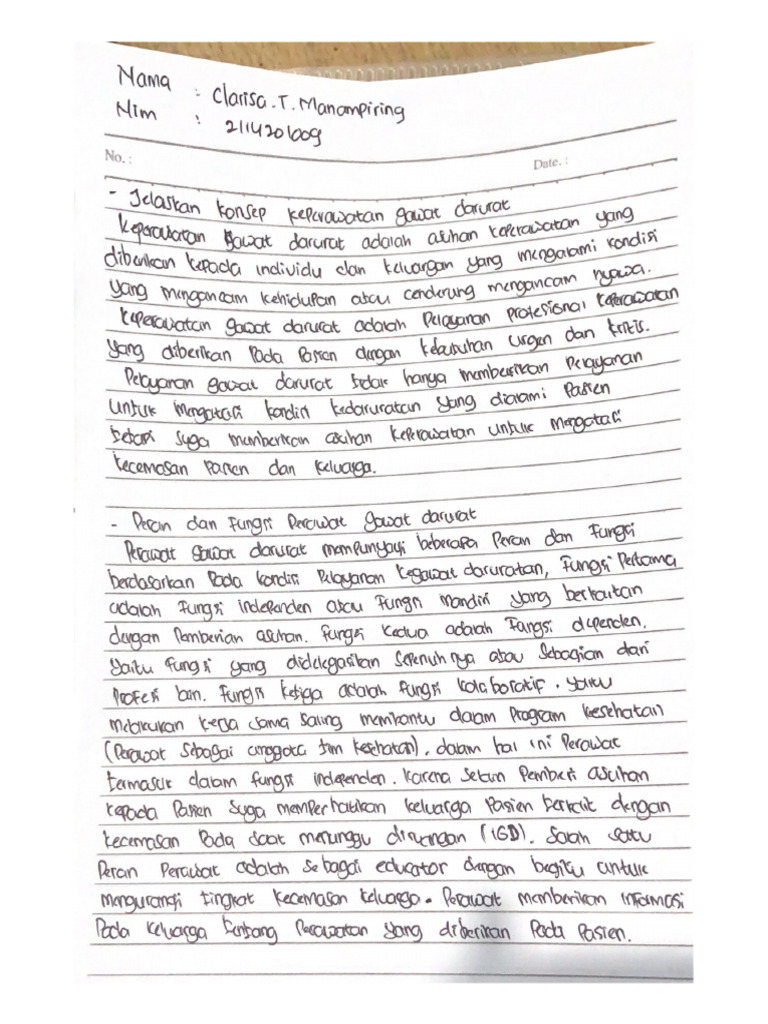 Nama : Clarisa.T. Manampiring
Nim : 2114201009
No. : Date. :
- Jelaskan konsep keperawatan gawat darurat
keperawatan gawat darurat adalah asuhan keperawatan yang
diberikan kepada individu dan keluargan yang mengalami kondisi
yang mengancam kehidupan atau cenderung mengancam nyawa.
keperawatan gawat darurat adalah pelayanan profesional keperawatan
yang diberikan pada pasien dengan kebutuhan urgen dan kritis.
Pelayanan gawat darurat tidak hanya memberikan pelayanan
untuk mengatasi kondisi kedaruratan yang dialami pasien
tetapi juga memberikan asuhan keperawatan untuk mengatasi
kecemasan pasien dan keluarga.
- Peran dan Fungsi Perawat gawat darurat
Perawat gawat darurat mempunyai beberapa peran dan fungsi
berdasarkan pada kondisi pelayanan kegawat daruratan, fungsi pertama
adalah fungsi independen atau fungsi mandiri yang berkaitan
dengan pemberian asuhan. fungsi kedua adalah fungsi dependen.
yaitu fungsi yang didelegasikan sepenuhnya atau sebagian dari
profesi lain. fungsi ketiga adalah fungsi kolaboratif. yaitu
melakukan kerja sama saling membantu dalam program kesehatan
(Perawat sebagai anggota tim kesehatan). dalam hal ini perawat
termasuk dalam fungsi independen. karena selain pemberi asuhan
kepada pasien juga memperhatikan keluarga pasien berkait dengan
kecemasan pada saat menunggu diruangan (IGD). Salah satu
peran perawat adalah sebagai educator dengan begitu untuk
mengurangi tingkat kecemasan keluarga. Perawat memberikan informasi
pada keluarga tentang perawatan yang diberikan pada pasien.